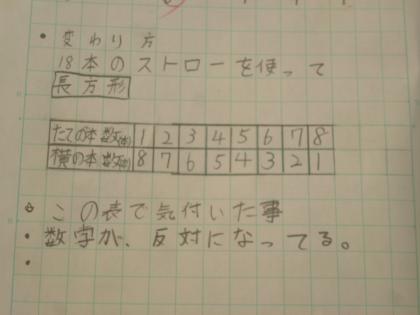 ・変わり方
18本のストローを使って
長方形
たての本数(本) 1 2 3 4 5 6 7 8
横の本数(本) 8 7 6 5 4 3 2 1
◦この表で気付いた事
・数字が、反対になってる。
・